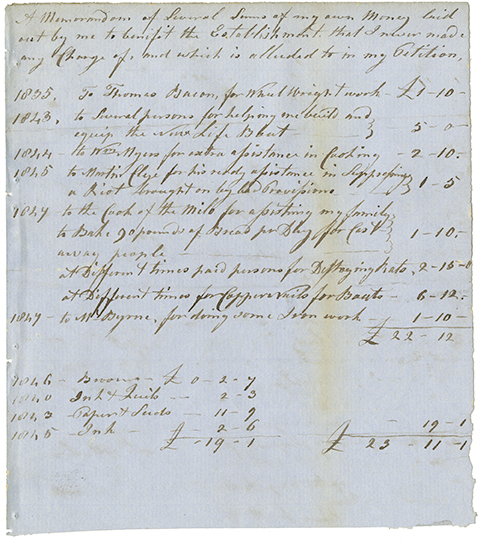 A Memorandom of Several Sums of my own Money laid
out by me to benifit the Establishment, that I never made
any Charge of, and which is alluded to in my Petition,
1835, To Thomas Bacon, for Wheel Wright work - £1-10-
1843, to Several persons for helping me build and
equip the New Life Boat - 5-0-
1844 - to Wm Myers for extra assistance in Cooking - 2-10-
1845 to Martin Clye for his ready assistance in Suppressing
a Riot brought on by bad Provisions - 1-5
1847 to the Cook of the Milo for assisting my family
to Bake 90 pounds of Bread per Day for Cast
away people - 1-10-
at Different times paid persons for Destroying Rats, 2-15-0
at Different times for Copper Nails for Boats - 6-12-
1847 - to Mr Byrne, for doing some Iron work - 1-10-
£ 22-12
1846 - Brooms - £ 0-2-7
1840 Ink & Quils - 2-3
1843 - Paper & Seeds - 11-9
1845 - Ink - 2-6 19-1
£ -19-1 £ 23-11-1